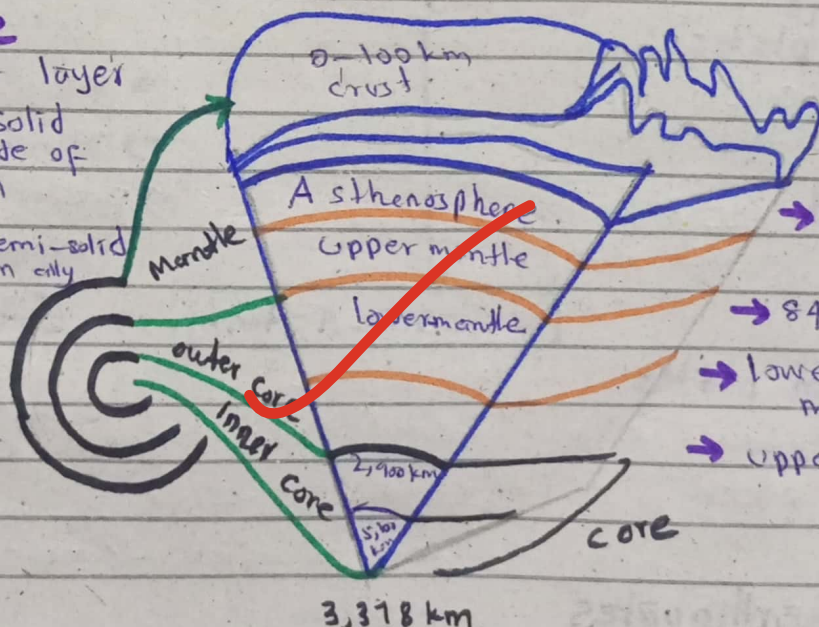 layer
solid
de of
emi-solid
n
0-100km
crust
Asthenosphere
Mantle
upper mantle
lowermantle
outer core
Inner
core
2,900km
5,100
km
core
3,378 km
84
lowe
m
uppe